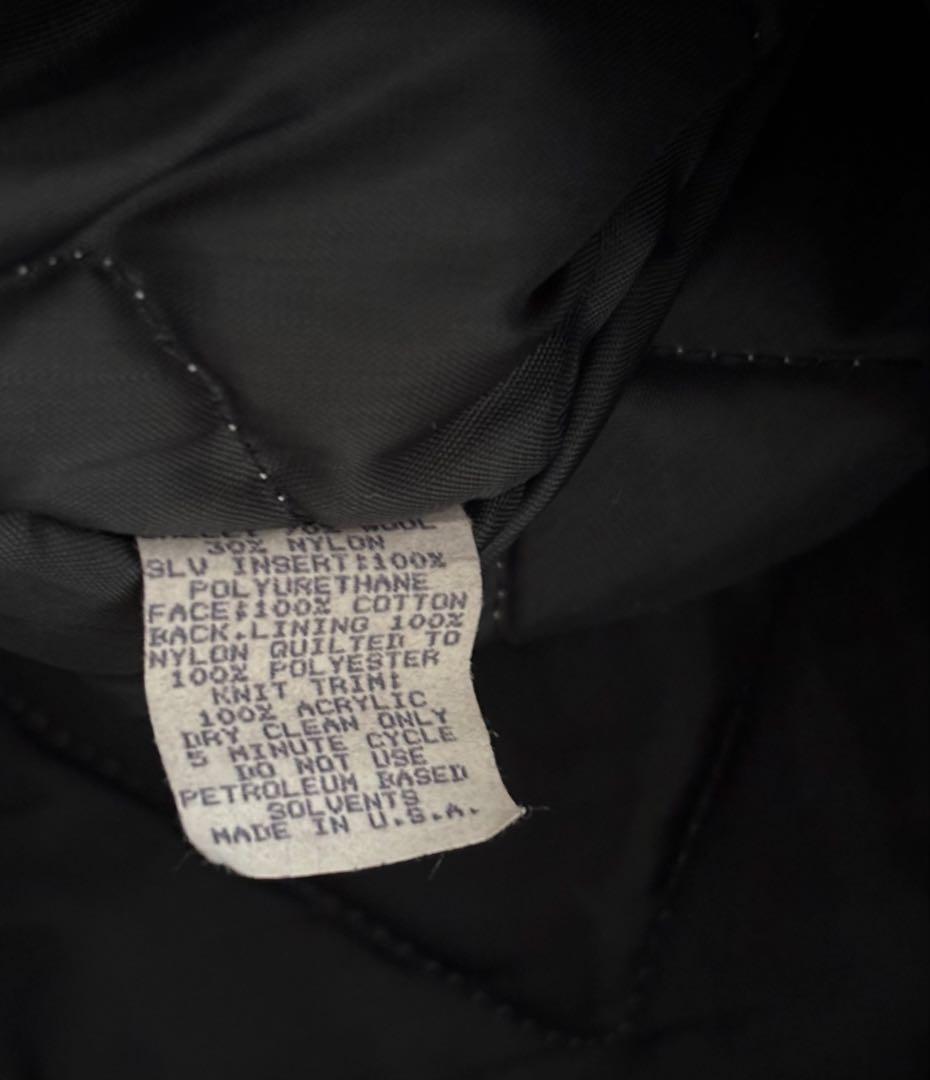 WOOL
30% NYLON
SLV INSERT:100%
POLYURETHANE
FACE:100% COTTON
BACK.LINING 100%
NYLON QUILTED TO
100% POLYESTER
KNIT TRIM:
100% ACRYLIC
DRY CLEAN ONLY
5 MINUTE CYCLE
DO NOT USE
PETROLEUM BASED
SOLVENTS
MADE IN U.S.A.